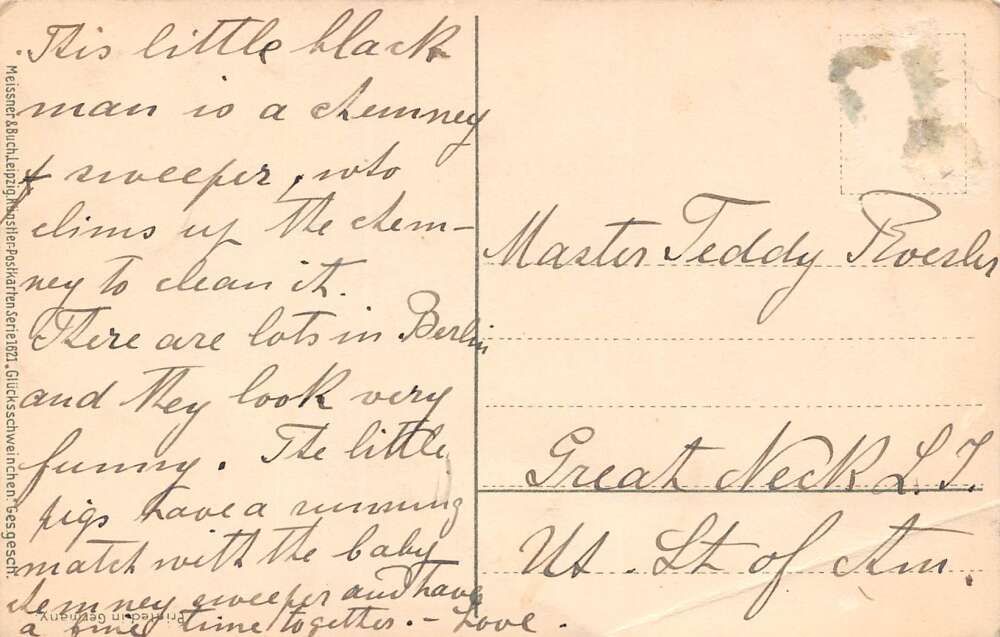 This little black
man is a chemney
sweeper, who
clims up the chem-
ney to clean it.
There are lots in Berlin
and they look very
funny. The little
pigs have a running
match with the baby
chemney sweeper and have
a fine time together. - Love.
Master Teddy
Great Neck L.I.
Ut. St of Am.
Meissner & Buch, Leipzig, Künstler-Postkarten Serie 1621 „Glücksschweinchen." Ges. gesch.
Printed in Germany